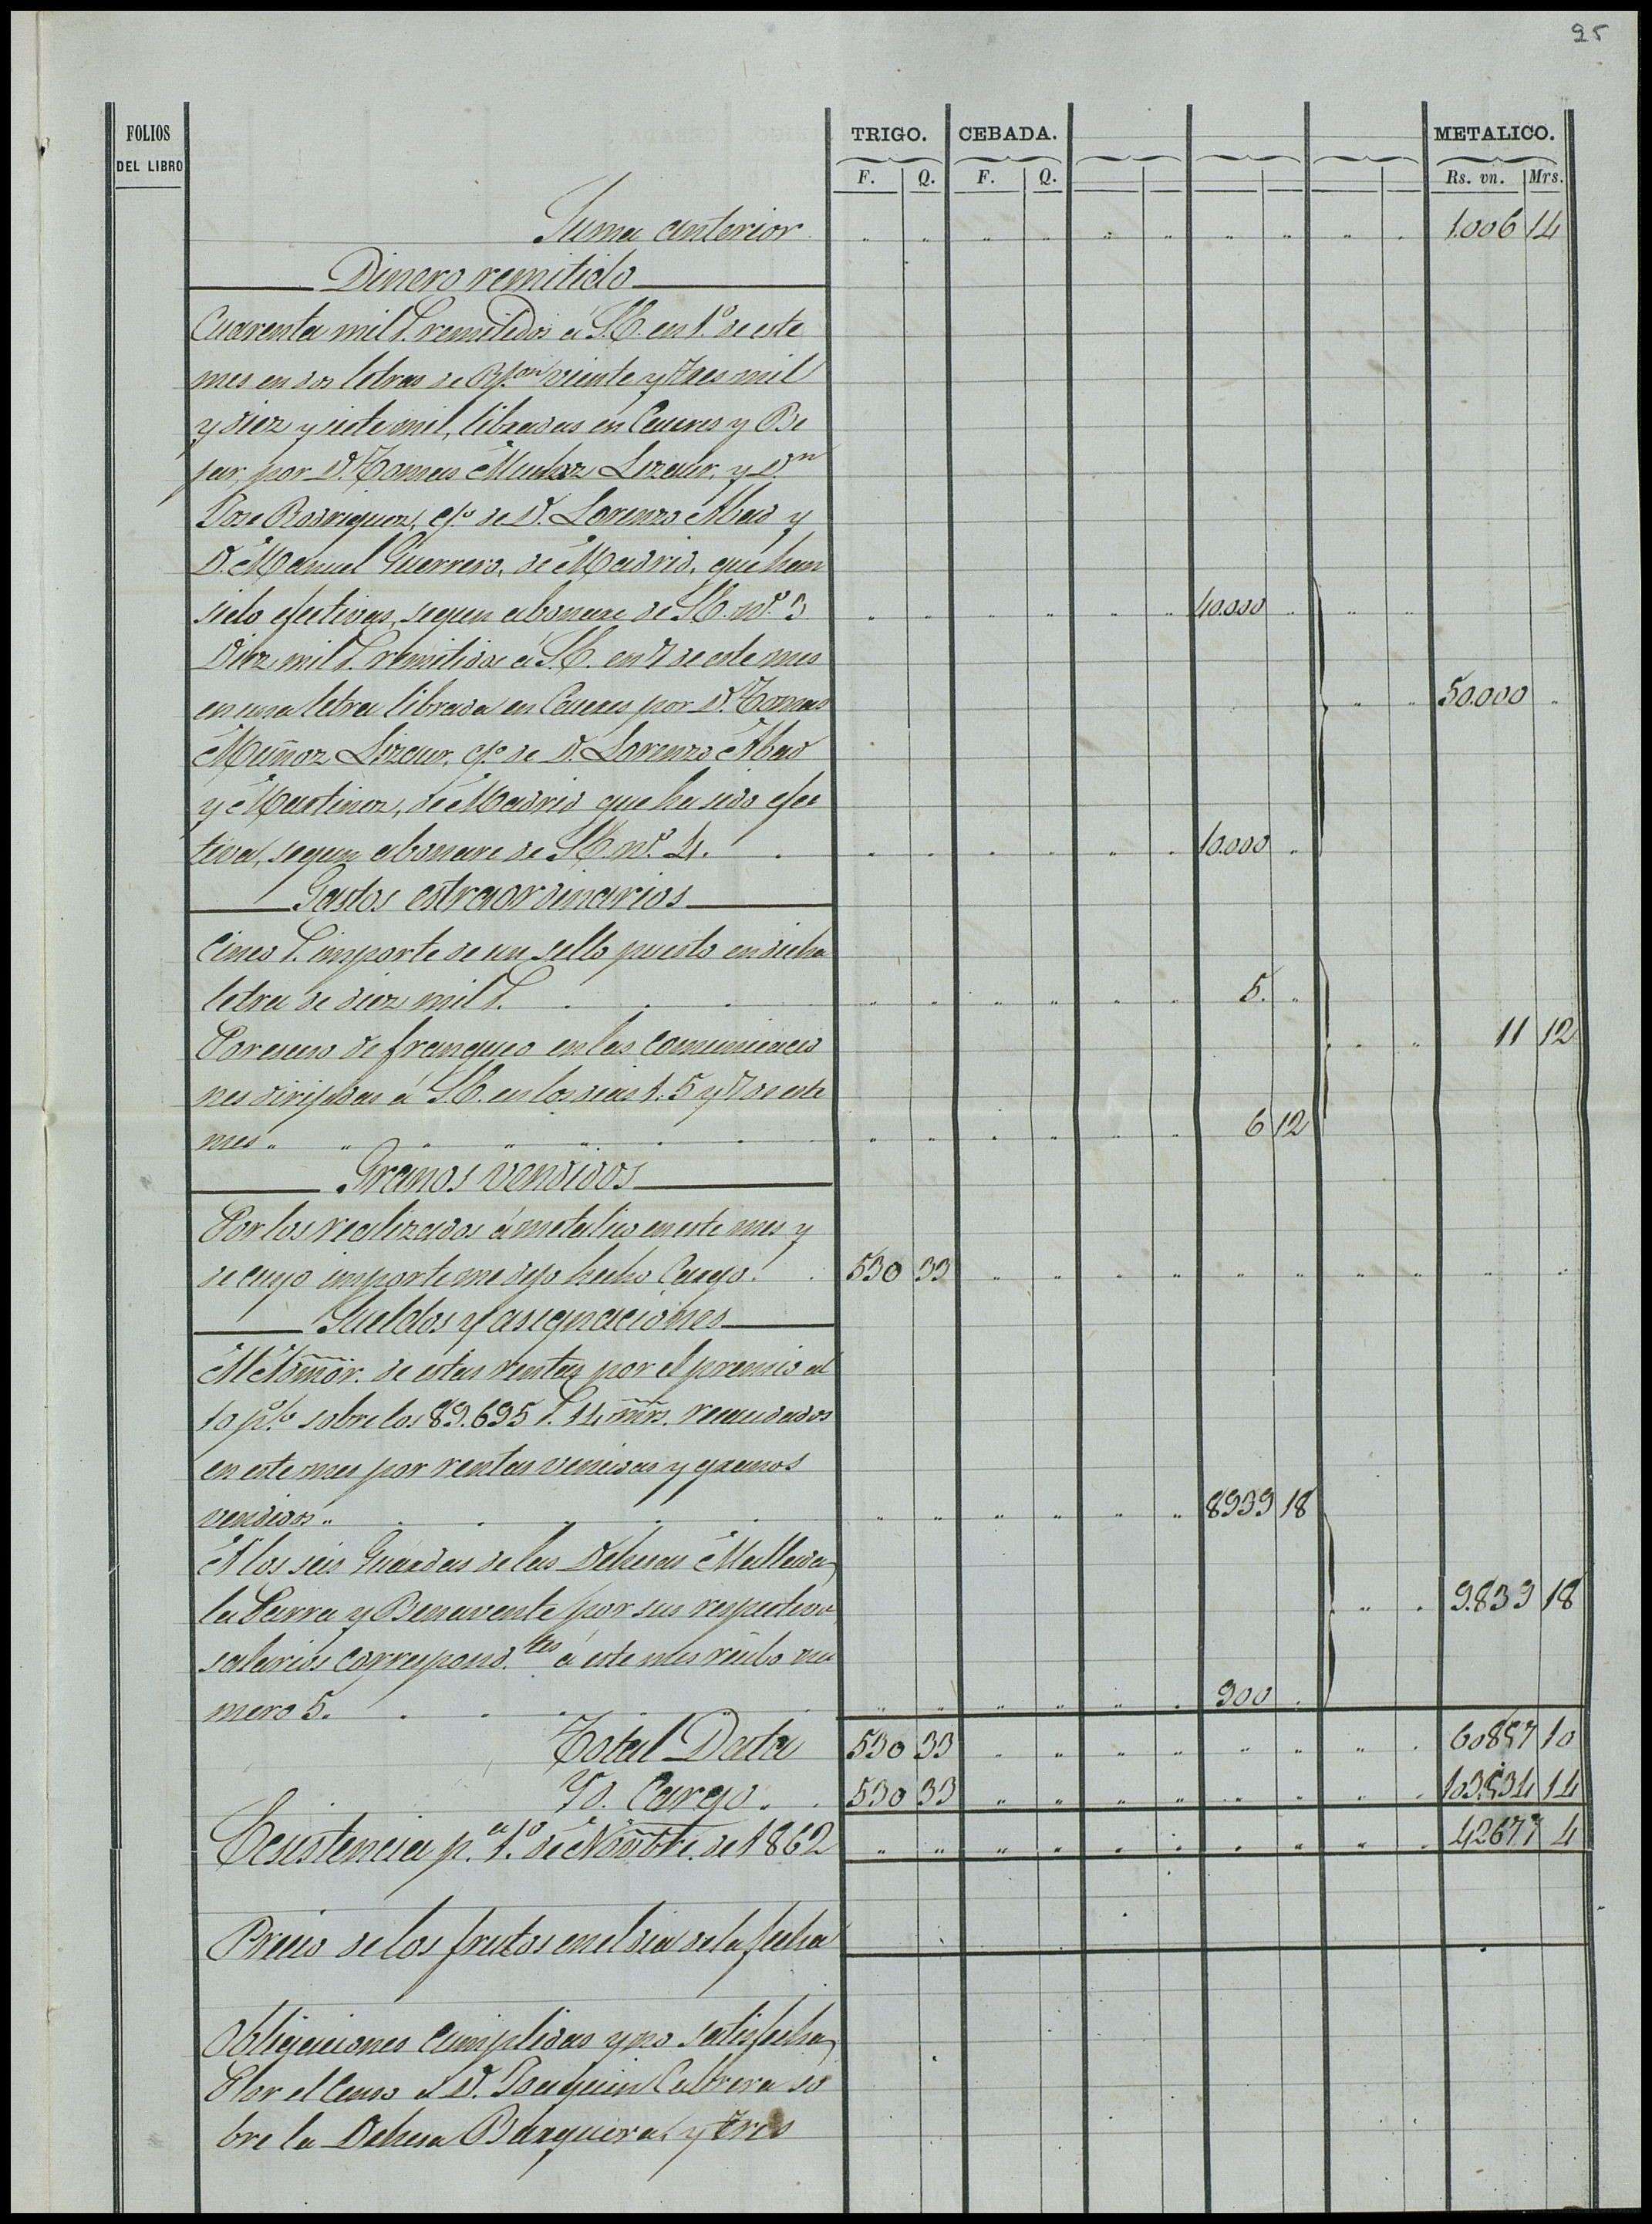 95
FOLIOS DEL LIBRO TRIGO. CEBADA. METALICO.
F. Q. F. Q. Rs. vn. Mrs.
Suma anterior 1.006 14
Dinero remitido
Cuarenta mil r. remitidos á S.E. en 1.º de este
mes en dos letras de veinte y tres mil
y diez y siete mil, libradas en Caceres y Be
jar, por D. Tomas Muñoz Lizaur, y D.n
Jose Rodriguez, c/o de D. Lorenzo Abad y
D. Manuel Guerrero, de Madrid, que han
sido efectivas, segun abonare de S.E. nº. 3 40.000
Diez mil r. remitidos á S.E. en 7 de este mes
en una letra librada en Caceres por D. Tomas 50.000
Muñoz Lizaur, c/o de D. Lorenzo Abad
y Martinez, de Madrid que ha sido efec
tiva, segun abonare de S.E. nº. 4. 10.000
Gastos estraordinarios
Cinco r. importe de un sello puesto en dicha
letra de diez mil r. 5.
Por esceso de franqueo en las comunicacio 11 12
nes dirijidas á S.E. en los dias 1. 5 y 7 de este
mes 6 12
Granos vendidos
Por los realizados á metalico en este mes y
de cuyo importe me dejo hecho Cargo. 530 33
Sueldos y asignaciones
Al Admõr. de estas rentas por el premio al
10 p.% sobre los 89.695 r. 14 mrs. recaudados
en este mes por rentas vencidas y granos
vendidos 8939 18
A los seis Guardas de las Dehesas Mallada,
la Parra y Benavente por sus respectivos 9.839 18
salarios correspond.tes á este mes recibo nu
mero 5. 900
Total Data 530 33 60857 10
Yd. Cargo. 530 33 103.534 14
Ecsistencia p.a 1.º de Nõvbre. de 1862 42677 4
Precio de los frutos en el dia de la fecha
Obligaciones cumplidas y no satisfechas
Por el Censo á D. Joaquin Cabrera so
bre la Dehesa Barquera y tres